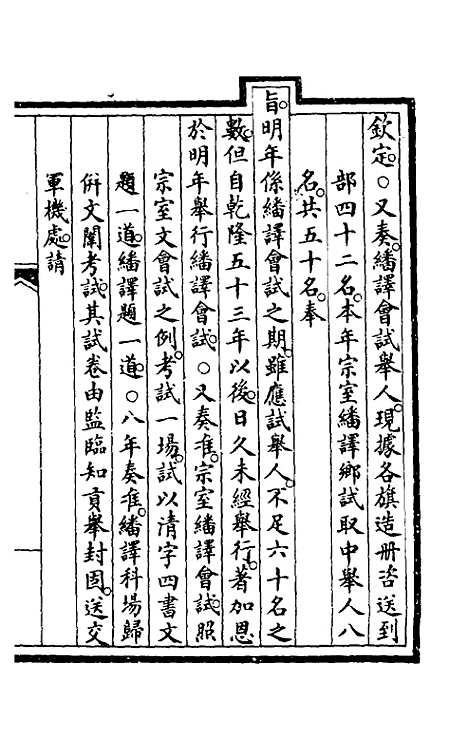 欽定。○又奏。繙譯會試舉人。現據各旗造册咨送到
部四十二名。本年宗室繙譯鄉試取中舉人八
名。共五十名。奉
旨。明年係繙譯會試之期。雖應試舉人。不足六十名之
數。但自乾隆五十三年以後。日久未經舉行。著加恩
於明年舉行繙譯會試。○又奏准。宗室繙譯會試。照
宗室文會試之例。考試一場。試以清字四書文
題一道。繙譯題一道。○八年奏准。繙譯科場歸
併文闈考試。其試卷由監臨知貢舉封固。送交
軍機處。請